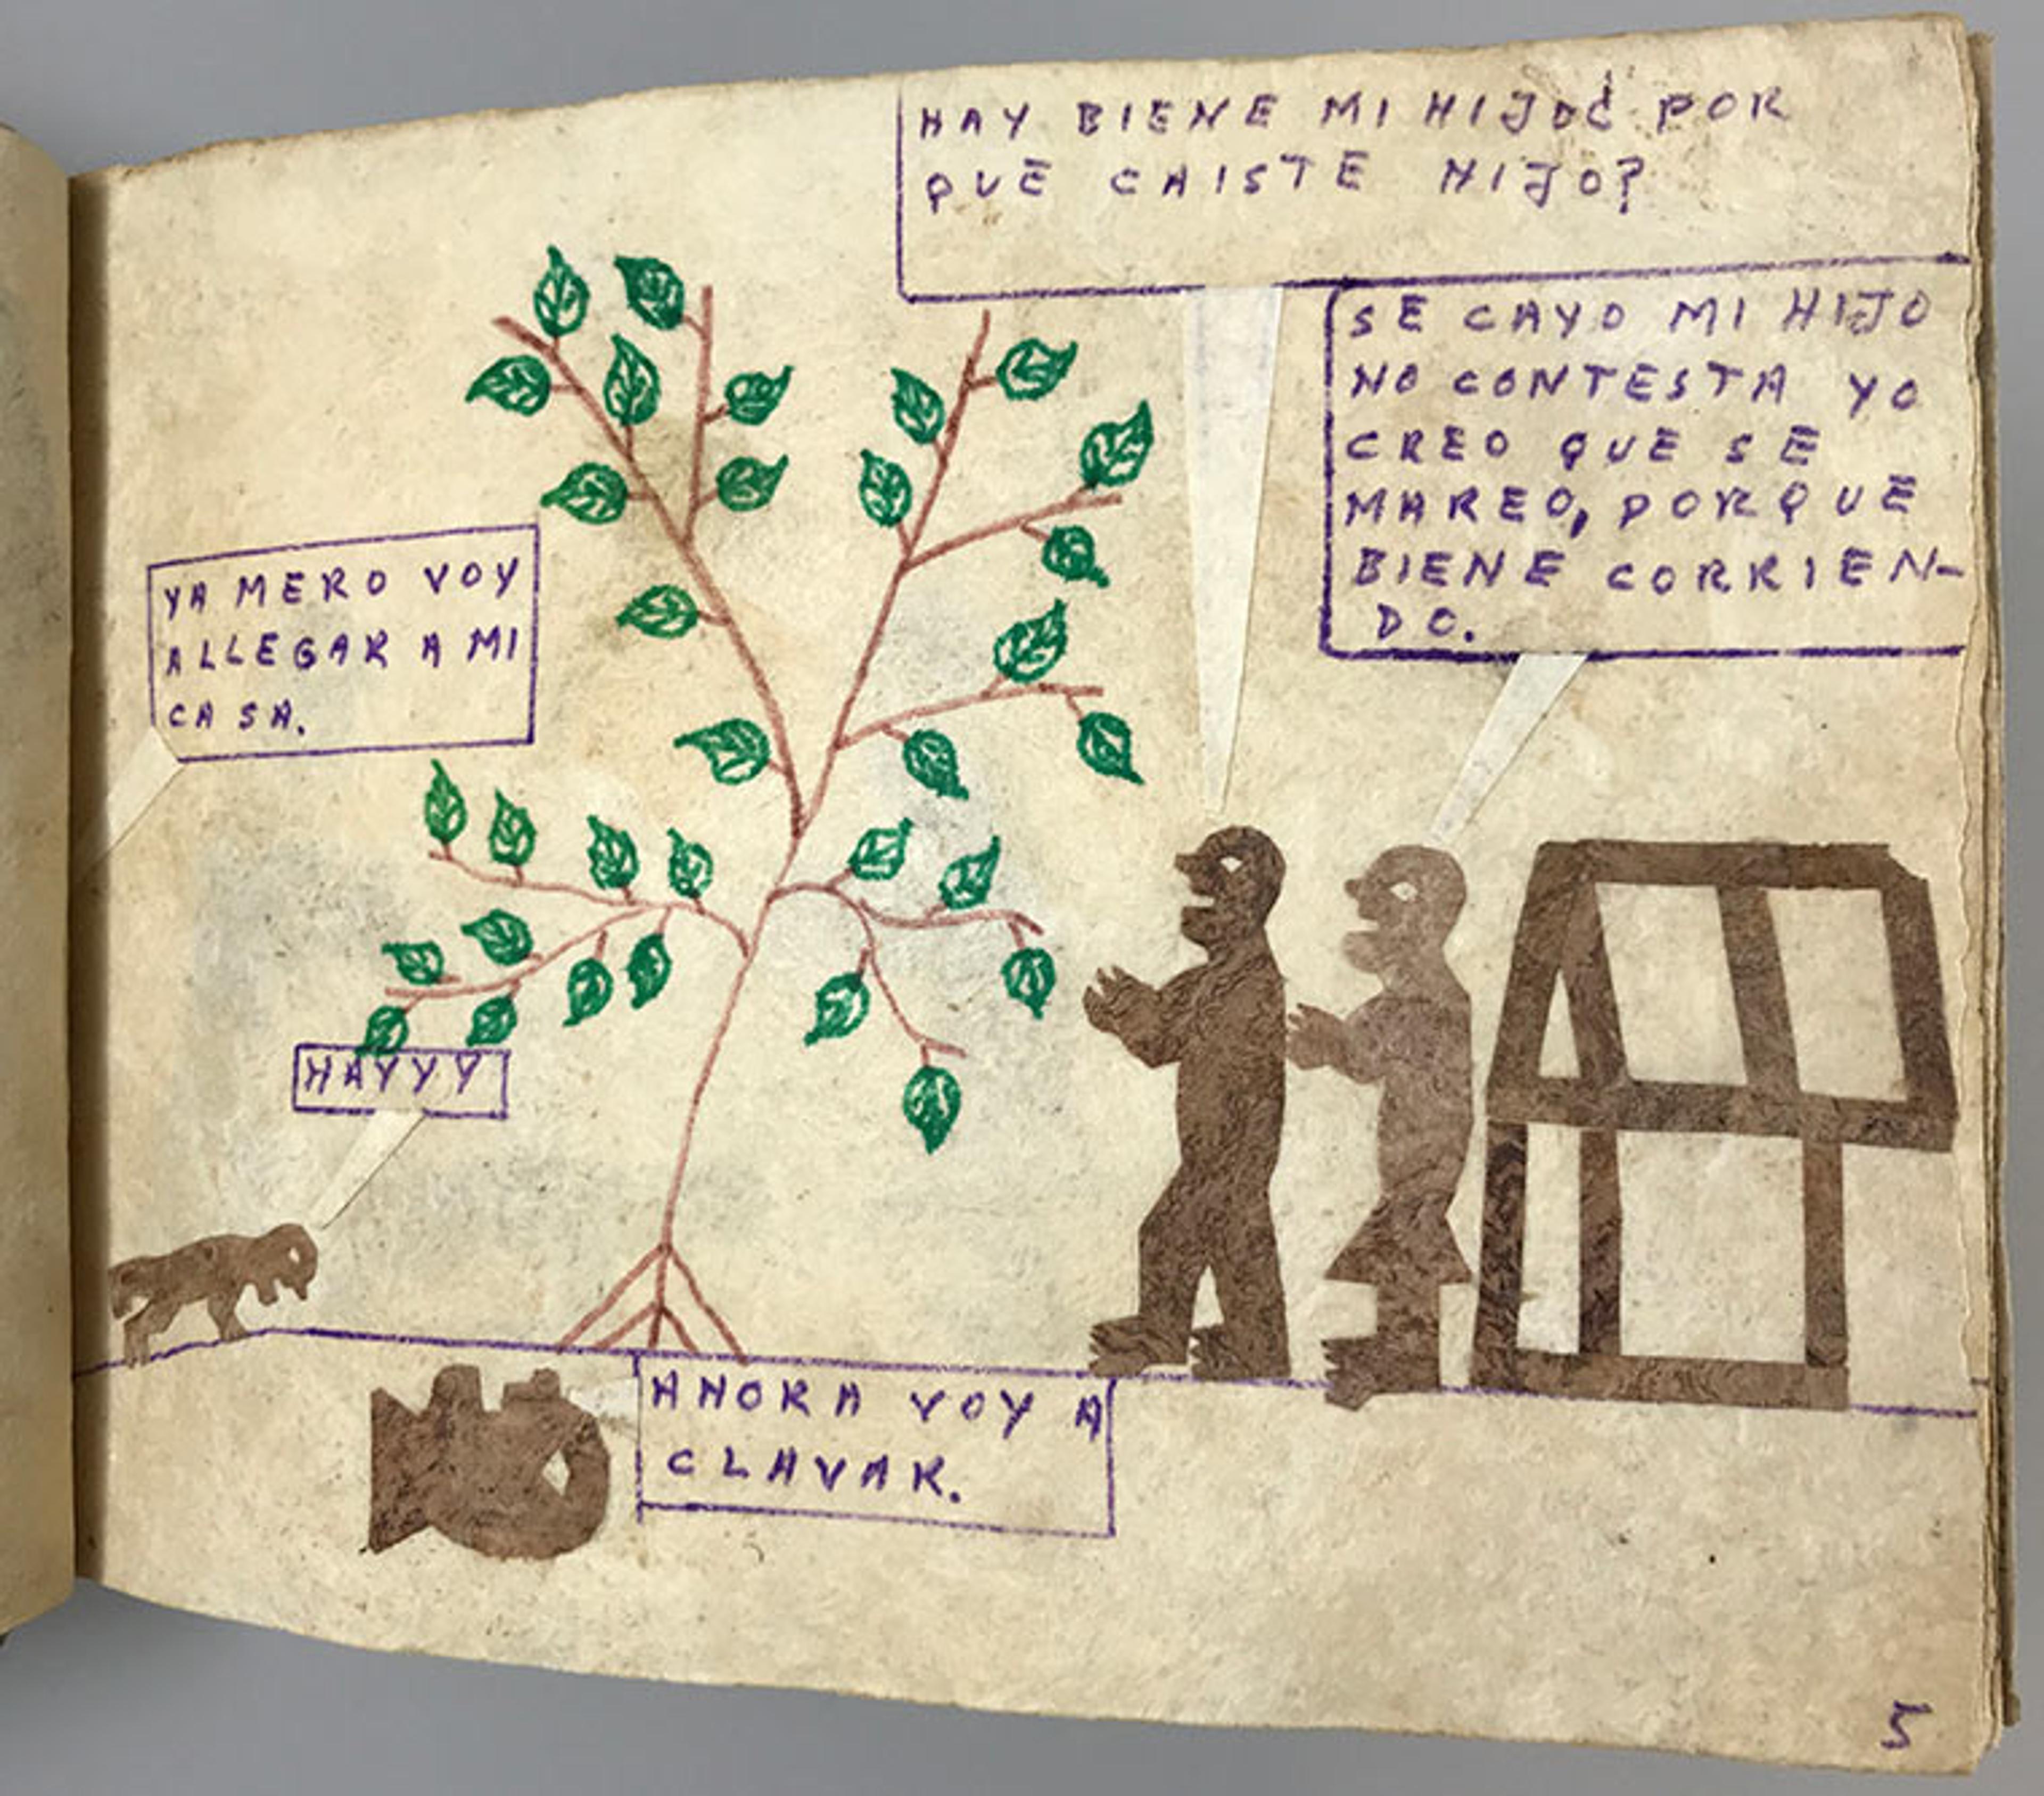 HAY BIENE MI HIJO¿ POR
QUE CAISTE HIJO?
SE CAYO MI HIJO
NO CONTESTA YO
CREO QUE SE
MAREO, PORQUE
BIENE CORRIEN-
DO.
YA MERO VOY
ALLEGAR A MI
CASA.
HAYYY
AHORA VOY A
CLAVAR.
5